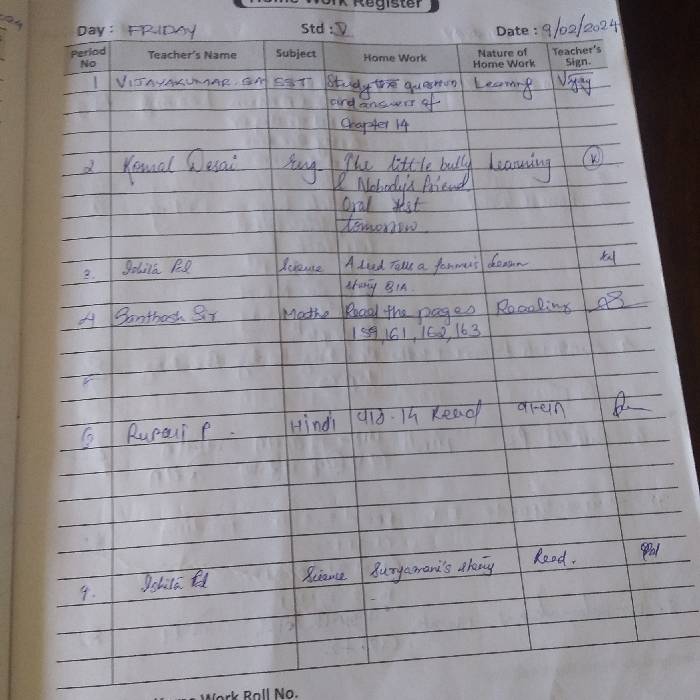 Home Work Register
Day : FRIDAY Std : V Date : 9/02/2024
Period No Teacher's Name Subject Home Work Nature of Home Work Teacher's Sign.
1 VIJAYAKUMAR. SST Study the question Learning Vijay
and answers of
Chapter 14
2 Komal Desai Eng. The little bully Learning
& Nobody's friend
Oral test
tomorrow
3. Science A seed Tells a farmer's
story Q/A.
4 Santhosh Sir Maths Read the pages Reading
159, 161, 162, 163
5
6 Rupali P. Hindi पाठ-14 Read वाचन
Science Suryamani's story Read.
Home Work Roll No.